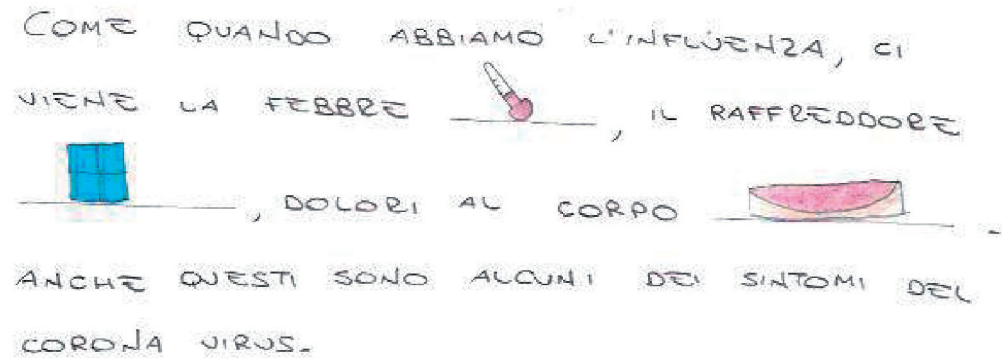 COME QUANDO ABBIAMO L'INFLUENZA, CI
VIENE LA FEBBRE , IL RAFFREDDORE
, DOLORI AL CORPO .
ANCHE QUESTI SONO ALCUNI DEI SINTOMI DEL
CORONA VIRUS.